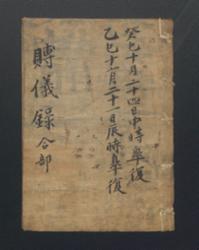 癸巳十月二十四日申時皐復
乙巳十一月二十一日辰時皐復
賻儀錄 合部